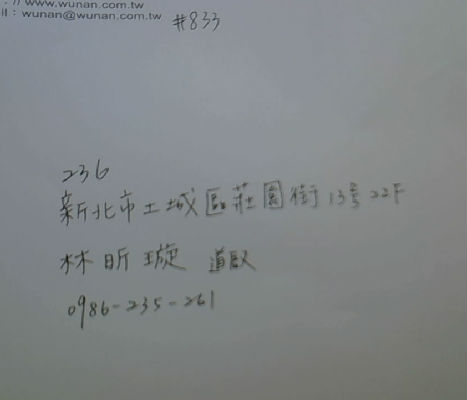 ://www.wunan.com.tw
il：wunan@wunan.com.tw
#833
236
新北市土城區莊園街13号22F
林昕璇 道啟
0986-235-261